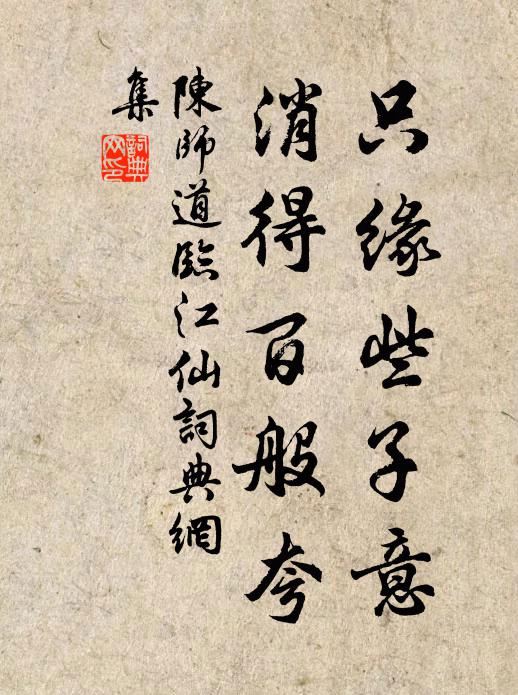 只緣些子意
消得百般夸
陳師道臨江仙詞典網
集
詞典網印